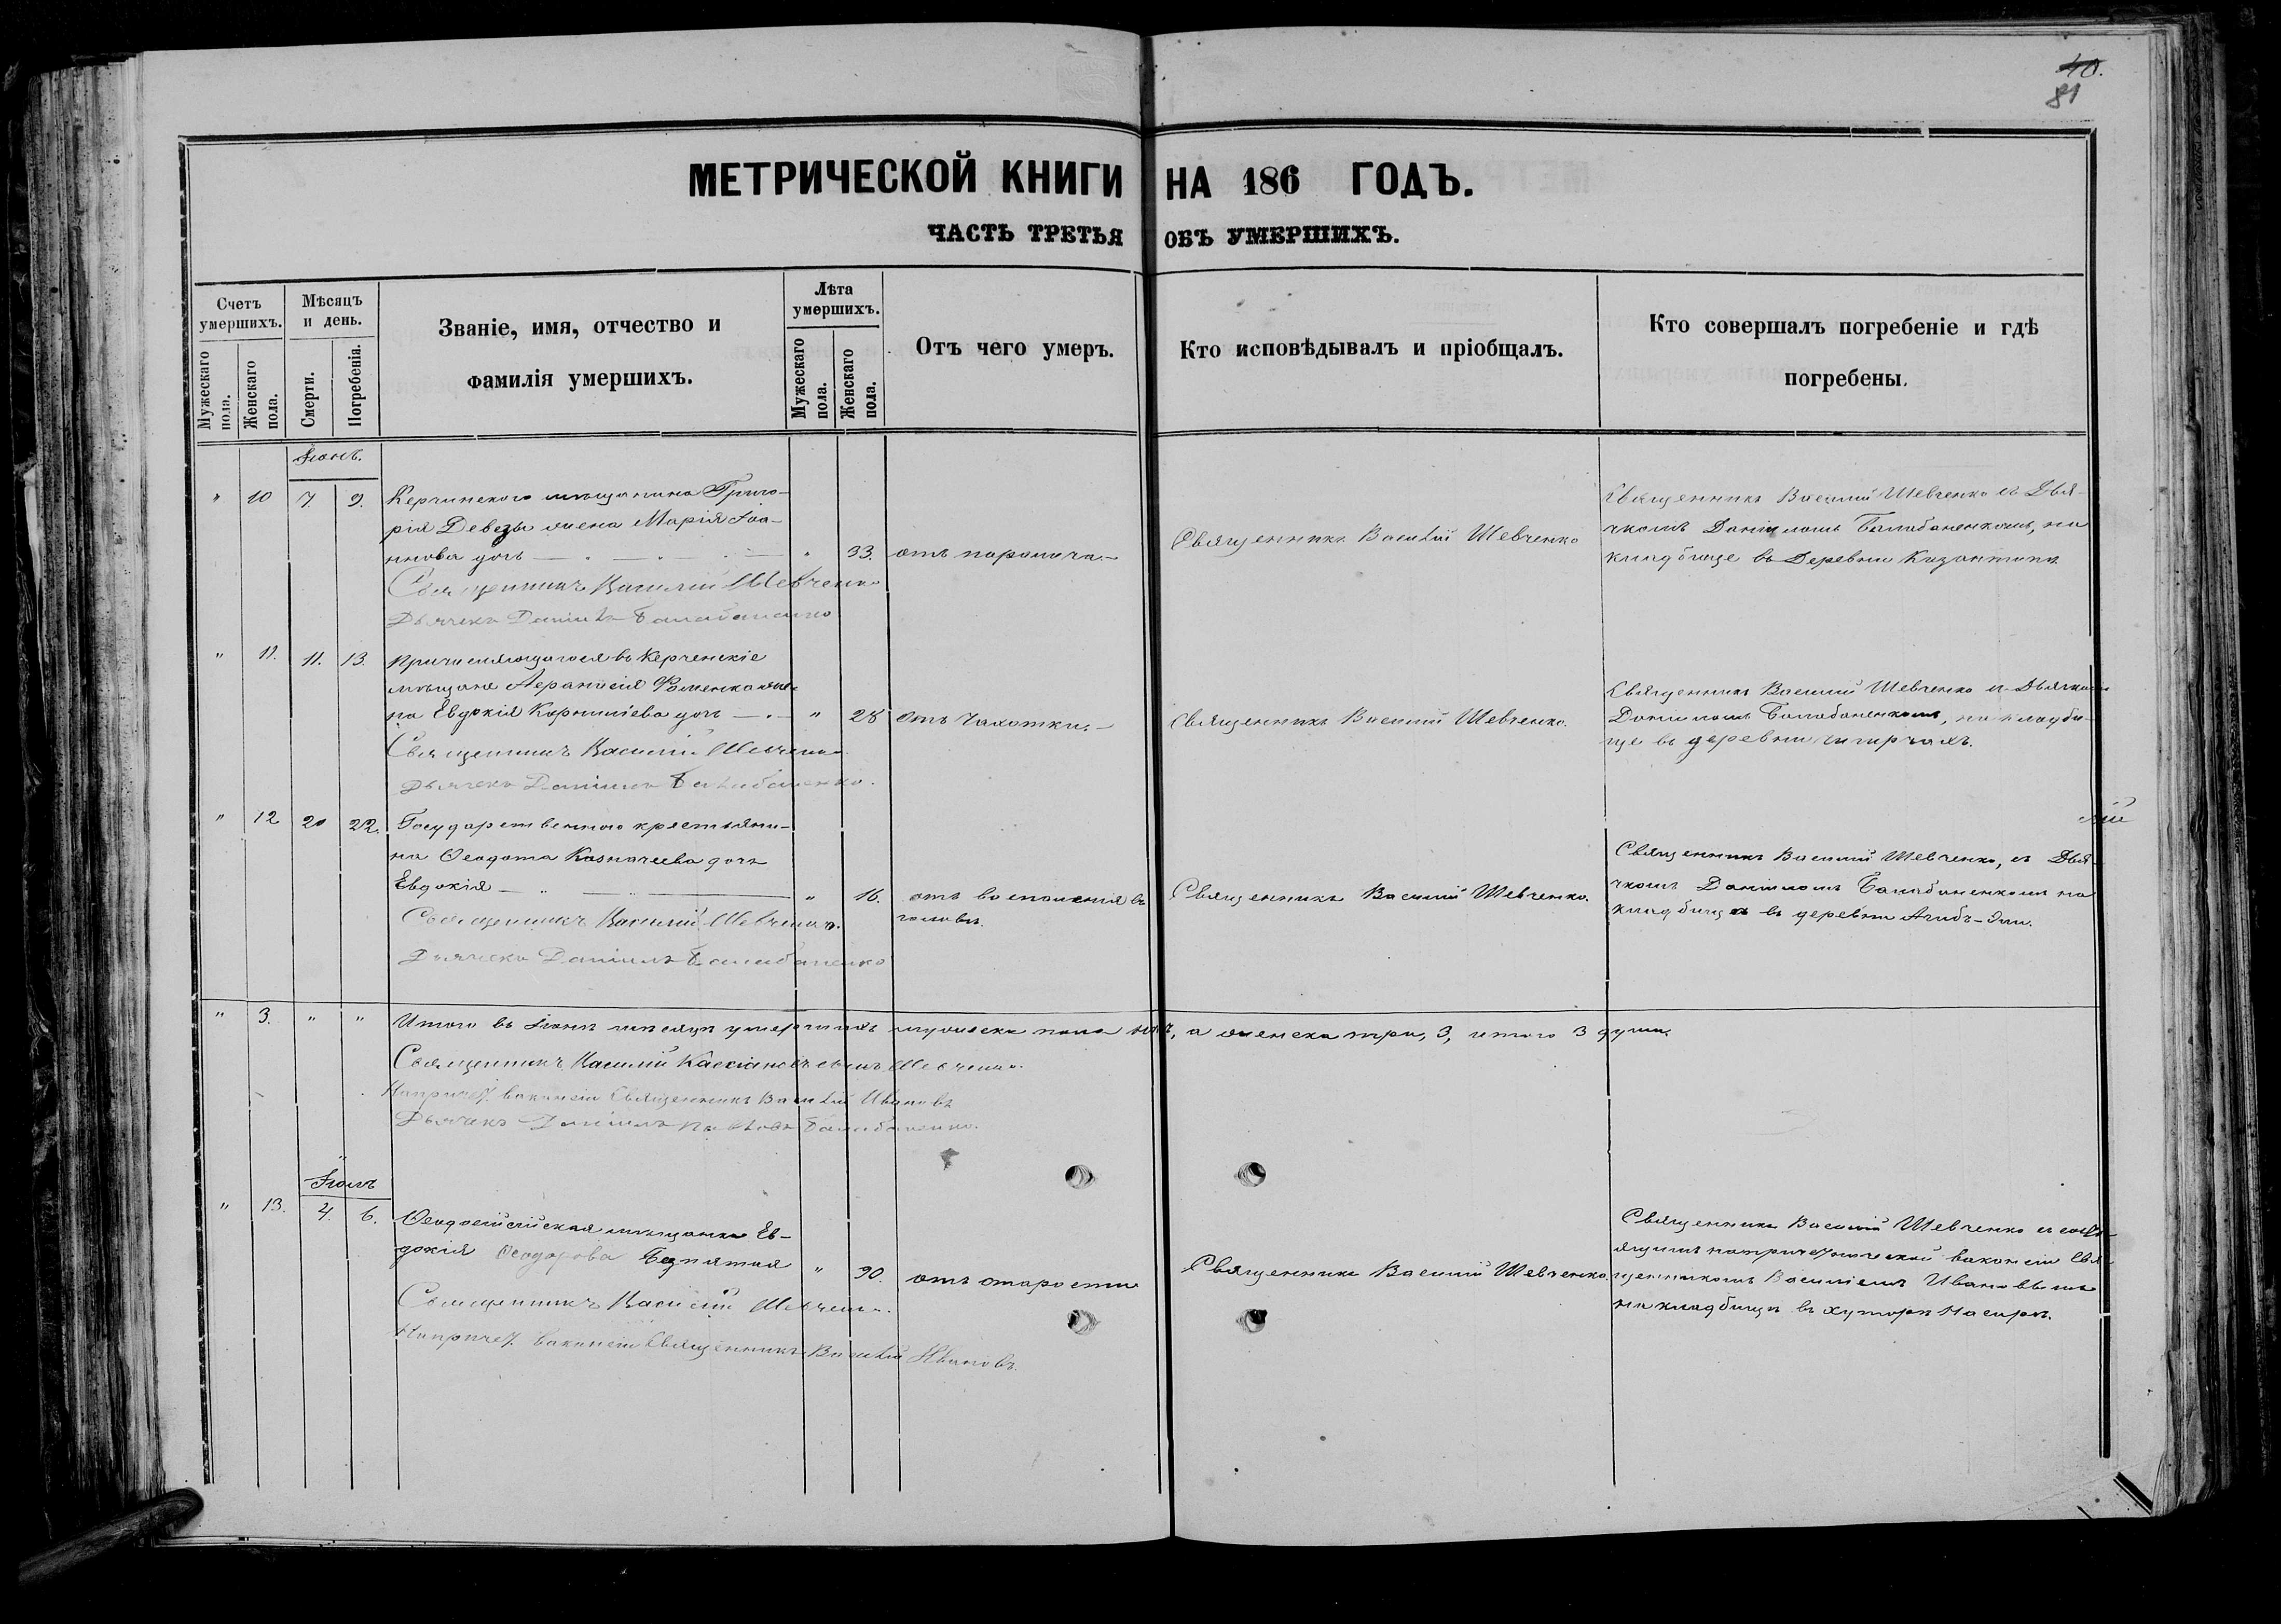 40.
81
МЕТРИЧЕСКОЙ КНИГИ НА 186 ГОДЪ.
ЧАСТЬ ТРЕТЬЯ ОБЪ УМЕРШИХЪ.
Счетъ умершихъ.
Мужескаго пола.
Женскаго пола.
Мѣсяцъ и день.
Смерти.
Погребенія.
Званіе, имя, отчество и
фамилія умершихъ.
Лѣта умершихъ.
Мужескаго пола.
Женскаго пола.
Отъ чего умеръ.
Кто исповѣдывалъ и пріобщалъ.
Кто совершалъ погребеніе и гдѣ
погребены.
Іюнь.
" 10 7. 9. Керчинскаго мѣщанина Григо-
рія Девезы жена Марія Іоа-
ннова дочь " 33. отъ паралича.
Священникъ Василій Шевченко
Дьячекъ Даніилъ Балабаненко
Священникъ Василій Шевченко
Священникъ Василій Шевченко съ Дья-
чкомъ Даніиломъ Балабаненкомъ, на
кладбище въ Деревни Казантипъ
" 11. 11. 13. Причисляющагося въ Керченскіе
мѣщане Аѳанасія Фоменко же-
на Евдокія Корнилієва дочь " 28 отъ чахотки.
Священникъ Василій Шевченко
Дьячекъ Даніилъ Балабаненко.
Священникъ Василій Шевченко.
Священникъ Василій Шевченко и Дьячкомъ
Даніиломъ Балабаненкомъ, на кладби-
ще въ деревни
" 12 20 22. Государственнаго крестьяни-
на Ѳеодота Казначеева дочь
Евдокія " 16. отъ воспаленія въ
головѣ.
Священникъ Василій Шевченко.
Дьячекъ Даніилъ Балабаненко
Священникъ Василій Шевченко.
Священникъ Василій Шевченко, съ Дья-
чкомъ Даніиломъ Балабаненкомъ на
кладбищѣ въ деревни
" 3. " " Итого въ Іюнѣ мѣсяцѣ умершихъ мужеска пола нѣтъ, а женска три, 3, итого 3 души.
Священникъ Василій Кассіановъ сынъ Шевченко.
Напричет. вакансіи Священникъ Василій Ивановъ
Дьячекъ Даніилъ Павловъ Балабаненко.
Іюль
" 13. 4. 6. Ѳеодосійская мѣщанка Ев-
докія Ѳеодорова Безпятая " 90. отъ старости
Священникъ Василій Шевченко.
Напричет. вакансіи Священникъ Василій Ивановъ.
Священникъ Василій Шевченко.
Священникъ Василій Шевченко съ состо-
ящимъ на причетнической вакансіи Свя-
щенникомъ Василіемъ Ивановымъ
на кладбищѣ въ хуторѣ Насырѣ.